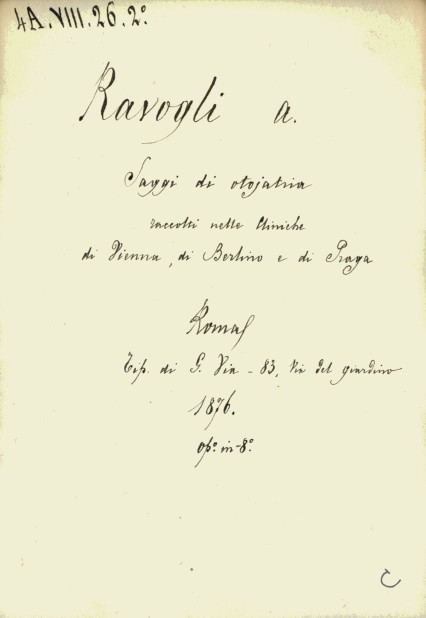 4A.VIII.26.2º
Ravogli a.
Saggi di otojatria
raccolti nelle Cliniche
di Vienna, di Berlino e di Praga
Roma
Tip. di G. Via - 83, Via del giardino
1876.
opº. in-8º.